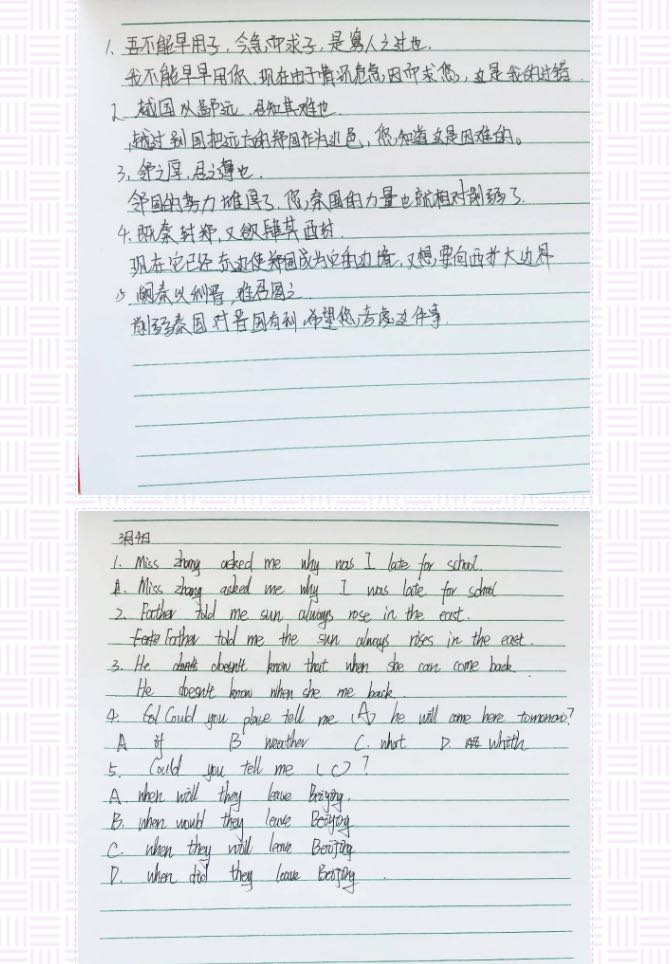 1. 吾不能早用子，今急而求子，是寡人之过也.
我不能早早用你，现在由于情况危急因而求您，这是我的过错
2. 越国以鄙远，君知其难也
越过别国把远方的郑国作为边邑，您知道这是困难的。
3, 邻之厚，君之薄也.
邻国的势力雄厚了，您秦国的力量也就相对削弱了
4. 既东封郑，又欲肆其西封.
现在它已经东边使郑国成为它的边境，又想要向西扩大边界
5 阙秦以利晋，唯君图之
削弱秦国对晋国有利，希望您考虑这件事
3月4日
1. Miss zhang asked me why was I late for school.
Miss zhang asked me why I was late for school
2. Father told me sun always rose in the east.
Father told me the sun always rises in the east.
3. He doesn't know that when she can come back
He doesn't know when she me back.
4. Could you place tell me (A) he will come here tomorrow?
A if B weather C. what D. whith
5. Could you tell me (C)?
A. when will they leave Beijing.
B. when would they leave Beijing
C. when they will leave Beijing
D. when did they leave Beijing.